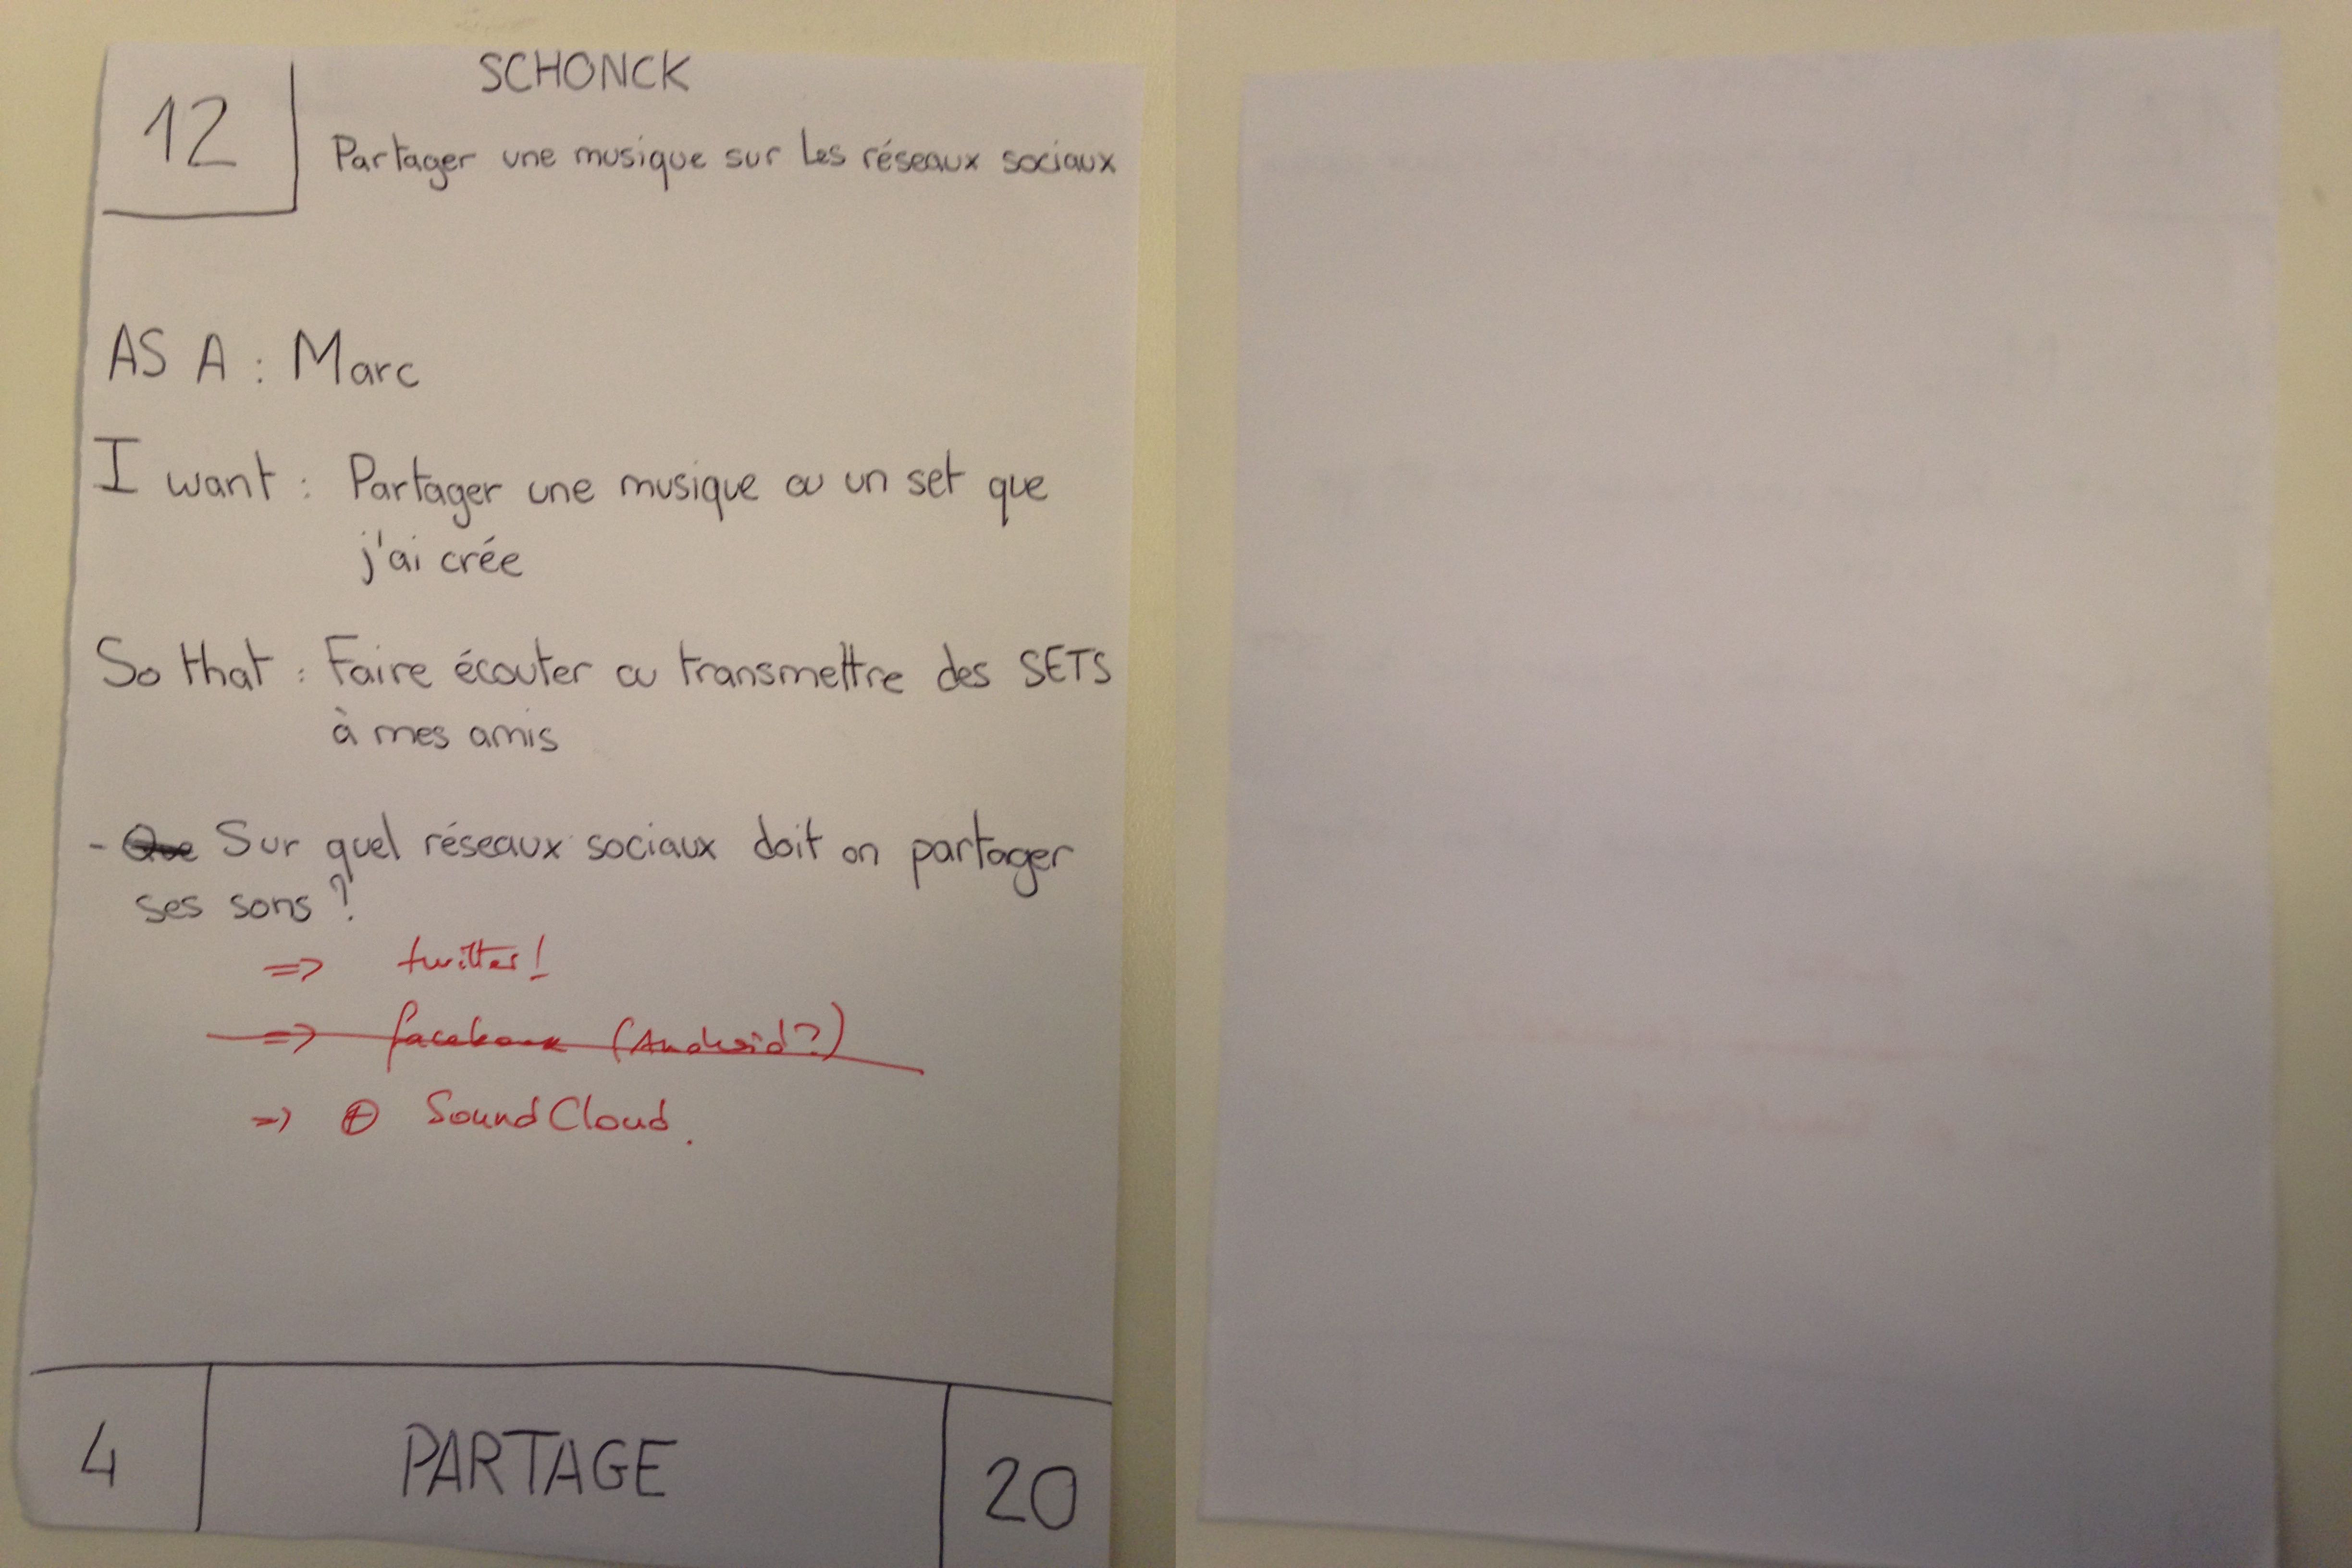 SCHONCK
12
Partager une musique sur les réseaux sociaux
AS A : Marc
I want : Partager une musique ou un set que
j'ai crée
So that : Faire écouter ou transmettre des SETS
à mes amis
- Que Sur quel réseaux sociaux doit on partager
ses sons ?
=> twitter!
=> facebook (Android?)
=> ⊕ SoundCloud.
4 PARTAGE 20